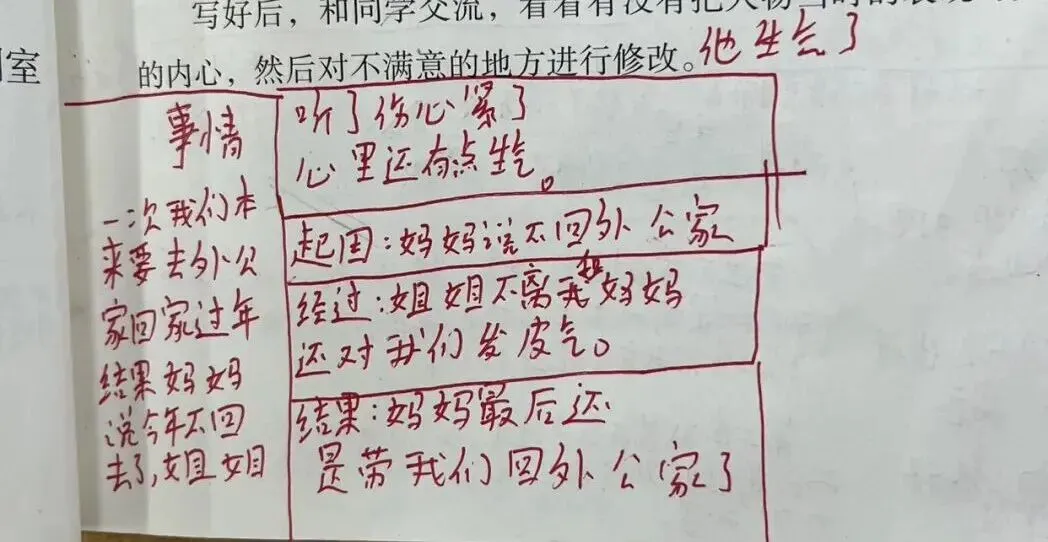 写好后，和同学交流，看看有没有把人物当时的表现
室
的内心，然后对不满意的地方进行修改。他生气了
事情
一次我们本
来要去外公
家回家过年
结果妈妈
说今年不回
去了，姐姐
听了伤心紧了
心里还有点生气。
起因：妈妈说不回外公家
经过：姐姐不离我和妈妈
还对我们发皮气。
结果：妈妈最后还
是带我们回外公家了